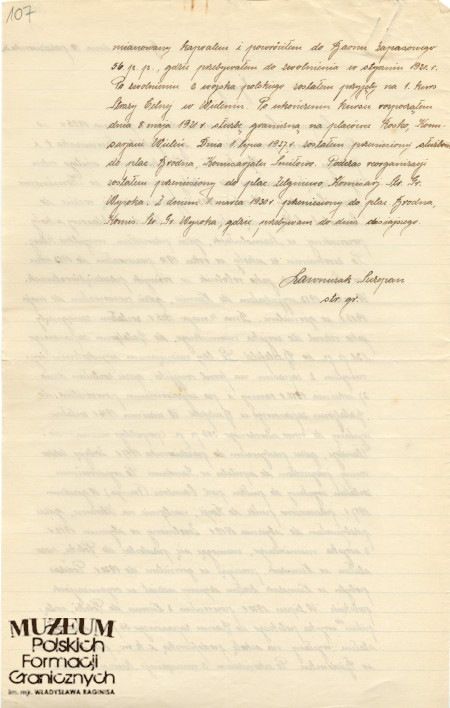 107
mianowany kapralem i powróciłem do Baonu Zapasowego
56. p. p., gdzie przebywałem do zwolnienia w styczniu 1921. r.
Po zwolnieniu z wojska polskiego zostałem przyjęty na 1. kurs
Straży Celnej w Wieleniu. Po ukończeniu kursu rozpocząłem
dnia 8 maja 1921 r. służbę graniczną na placówce Rosko, Kom-
isarjatu Wieleń. Dnia 1. lipca 1927. r. zostałem przeniesiony służbowo
do plac. Brodna, Komisarjatu Śmiłowo. Podczas reorganizacji
zostałem przeniesiony do plac. Zelgniewo, Komisarj. Str. Gr.
Wysoka. Z dniem 1. marca 1930 r. przeniesiony do plac. Brodna,
Komis. Str. Gr. Wysoka, gdzie przebywam do dnia dzisiejszego.
Szczepan
str. gr.
MUZEUM
Polskich
Formacji
Granicznych
im. mjr. WŁADYSŁAWA RAGINISA